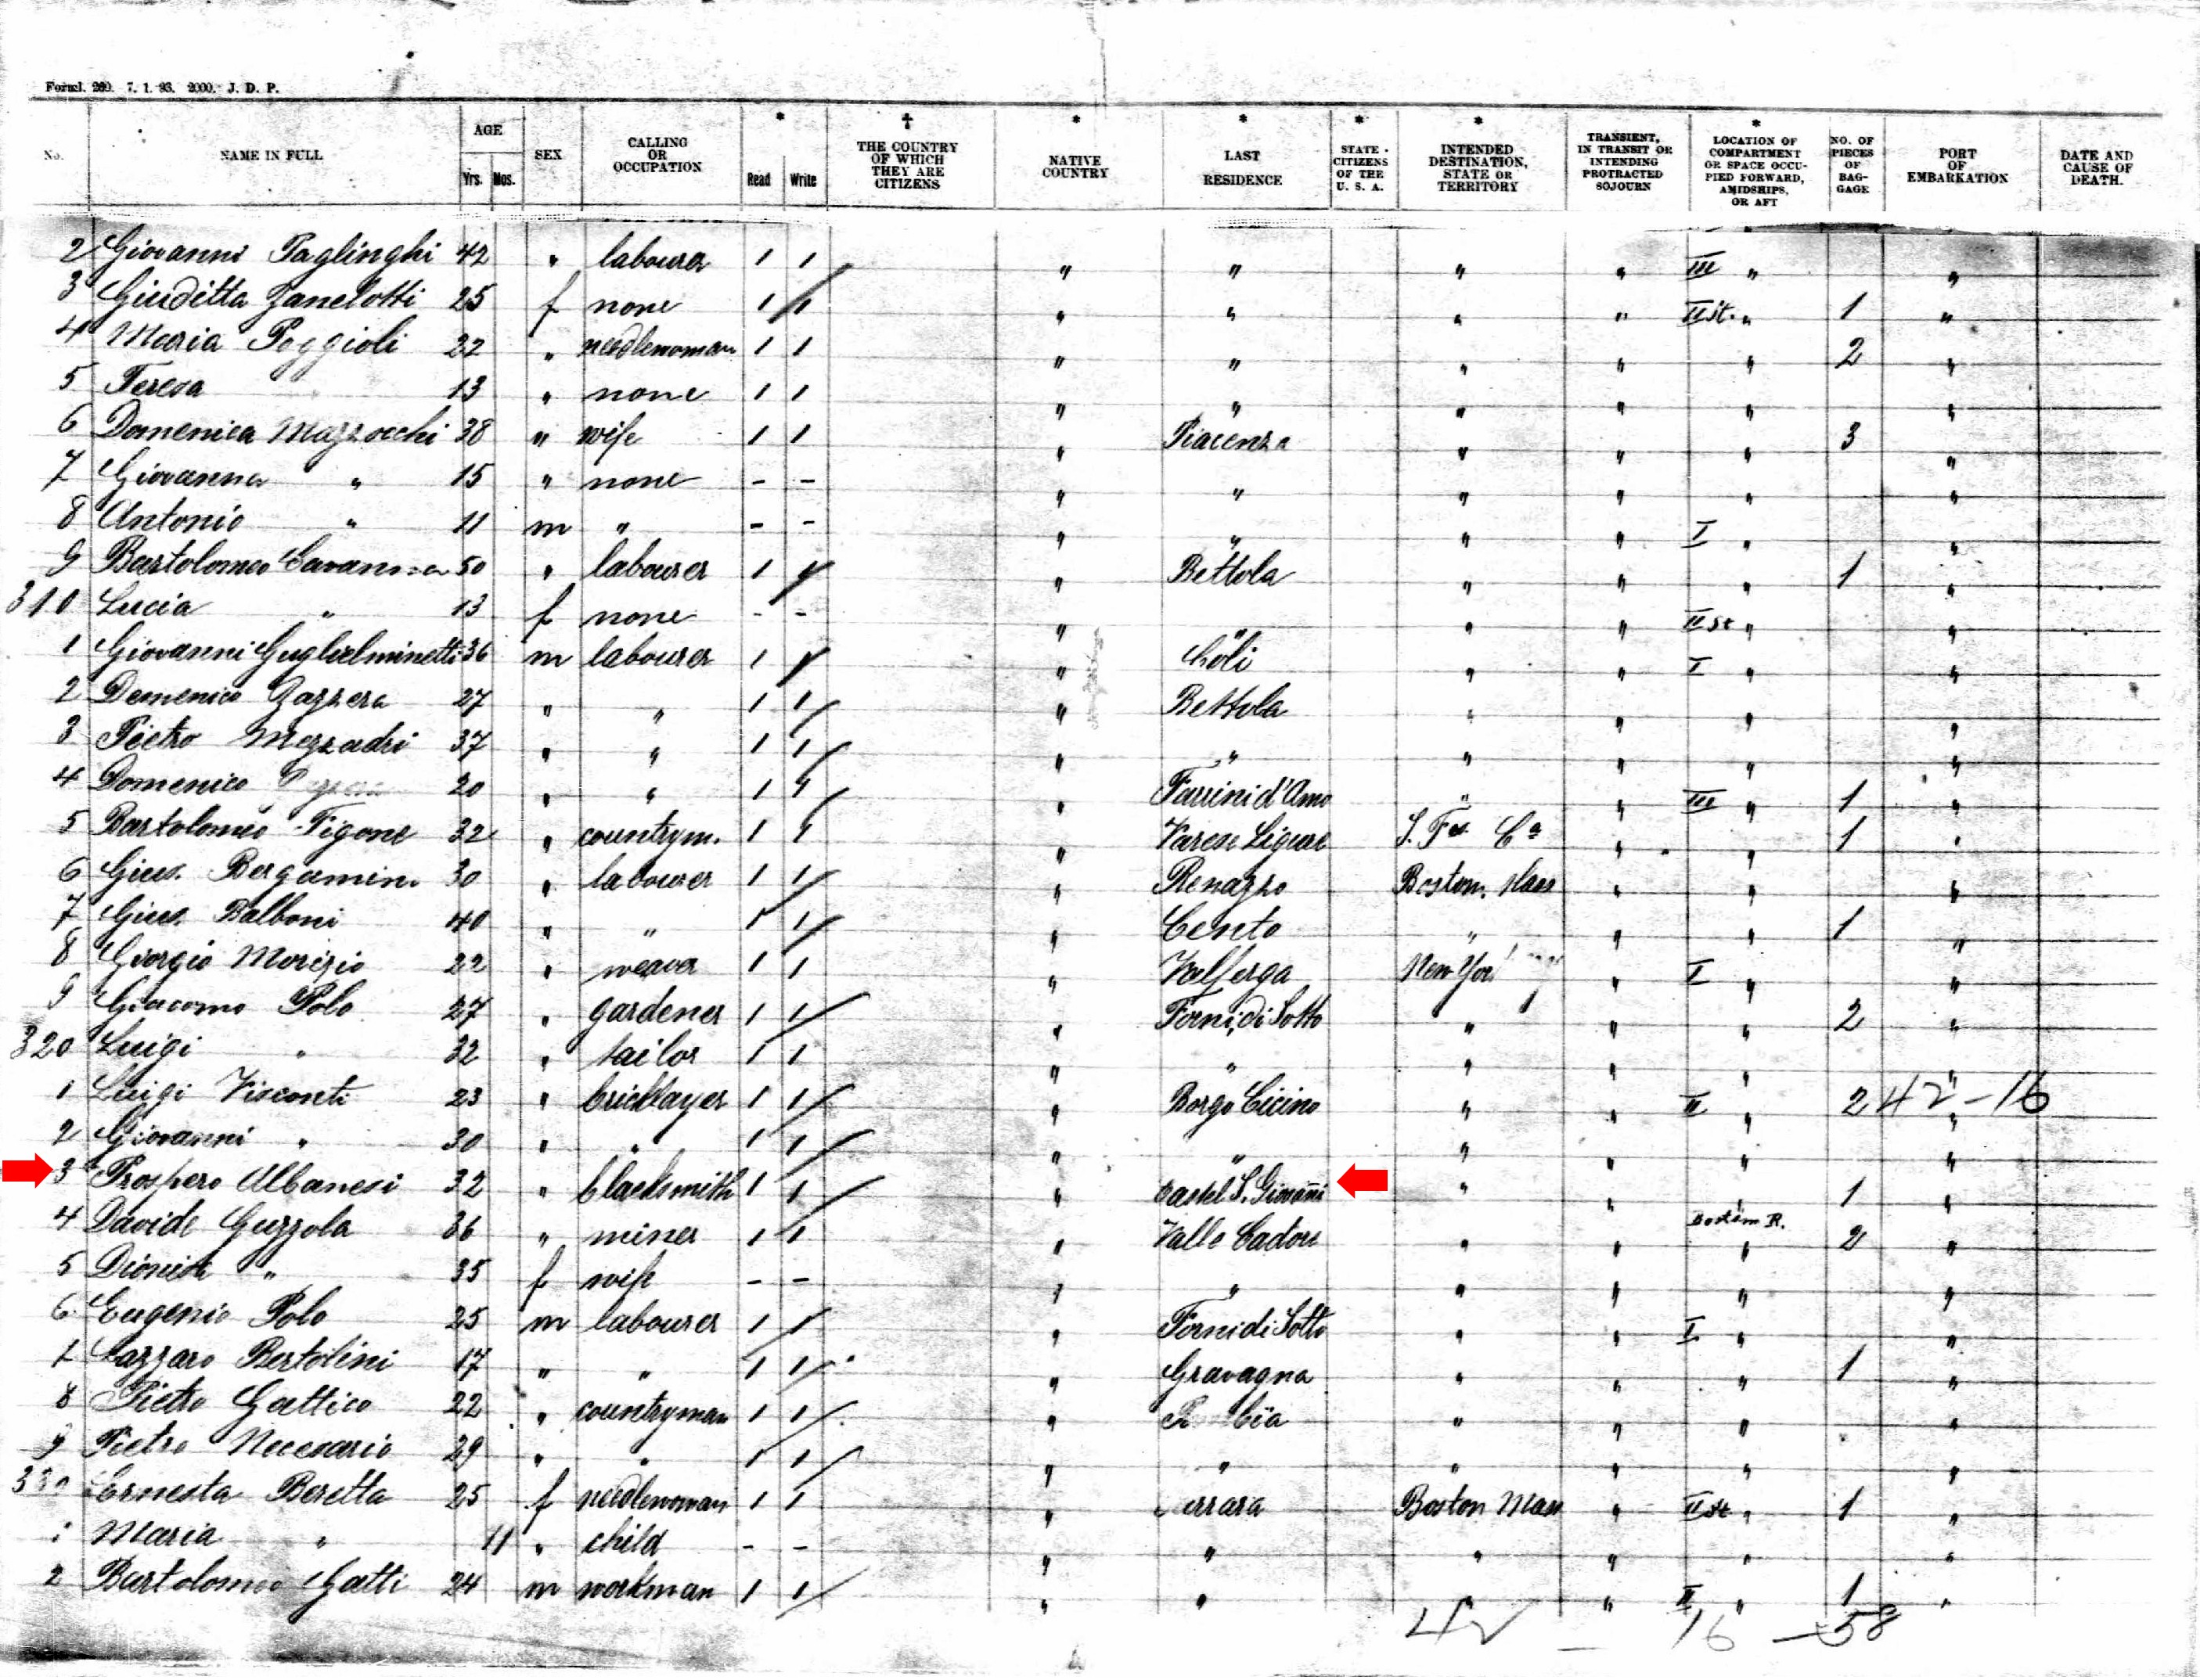 Formul. 260. 7. 1. 93. 2000. J. D. P.
No. NAME IN FULL AGE Yrs. Mos. SEX CALLING OR OCCUPATION * Read Write † THE COUNTRY OF WHICH THEY ARE CITIZENS * NATIVE COUNTRY * LAST RESIDENCE * STATE - CITIZENS OF THE U. S. A. * INTENDED DESTINATION, STATE OR TERRITORY TRANSIENT, IN TRANSIT OR INTENDING PROTRACTED SOJOURN * LOCATION OF COMPARTMENT OR SPACE OCCUPIED FORWARD, AMIDSHIPS, OR AFT NO. OF PIECES OF BAGGAGE PORT OF EMBARKATION DATE AND CAUSE OF DEATH.
2 Giovanni Paglinghi 42 " labourer 1 1 " " " " III " "
3 Giuditta Zanelotti 25 f none 1 1 " " " " II st. " 1 "
4 Maria Poggioli 22 " needlewoman 1 1 " " " " " 2 "
5 Teresa 13 " none 1 1 " " " " " "
6 Domenica Mazzocchi 38 " wife 1 1 " Piacenza " " " 3 "
7 Giovanna " 15 " none - - " " " " " "
8 Antonio " 11 m " - - " " " " I " "
9 Bartolomeo Cavanna 50 " labourer 1 1 " Bettola " " " 1 "
310 Lucia " 13 f none - - " " " " II st " "
1 Giovanni Guglielminetti 36 m labourer 1 1 " Coli " " I " "
2 Domenico Gazzera 27 " " 1 1 " Bettola " " " "
3 Pietro Mezzadri 37 " " 1 1 " " " " " "
4 Domenico 20 " " 1 1 " Farrini d'Amo " " III " 1 "
5 Bartolomeo Figone 32 " countrym. 1 1 " Varese Ligure S. Fco Ca " " 1 "
6 Gius. Bergamini 30 " labourer 1 1 " Renazzo Boston. Mass " " "
7 Gius. Balboni 40 " " 1 1 " Cento " " " 1 "
8 Giorgio Morizio 22 " weaver 1 1 " Valferga New York " I " "
9 Giacomo Polo 27 " gardener 1 1 " Forni di Sotto " " " 2 "
320 Luigi " 32 " tailor 1 1 " " " " " "
1 Luigi Visconti 23 " bricklayer 1 1 " Borgo Ticino " " II " 2 42-16 "
2 Giovanni " 30 " " 1 1 " " " " " "
3 Prospero Albanesi 32 " blacksmith 1 1 " Castel S. Giovanni " " " 1
4 Davide Guzzola 36 " miner 1 1 " Valle Cadore " " R. " 2 "
5 Dionisia " 35 f wife - - " " " " " "
6 Eugenio Polo 25 m labourer 1 1 " Forni di Sotto " " I " "
7 Lazzaro Bertolini 17 " " 1 1 " Gravagna " " " 1 "
8 Pietro Gattico 22 " countryman 1 1 " " " " "
9 Pietro Necesario 29 " " 1 1 " " " " " "
330 Ernesta Beretta 25 f needlewoman 1 1 " Ferrara Boston Mass " II st " 1 "
1 Maria " 11 " child - - " " " " " "
2 Bartolomeo Gatti 24 m workman 1 1 " " " " II " 1 "
42 - 16 - 58